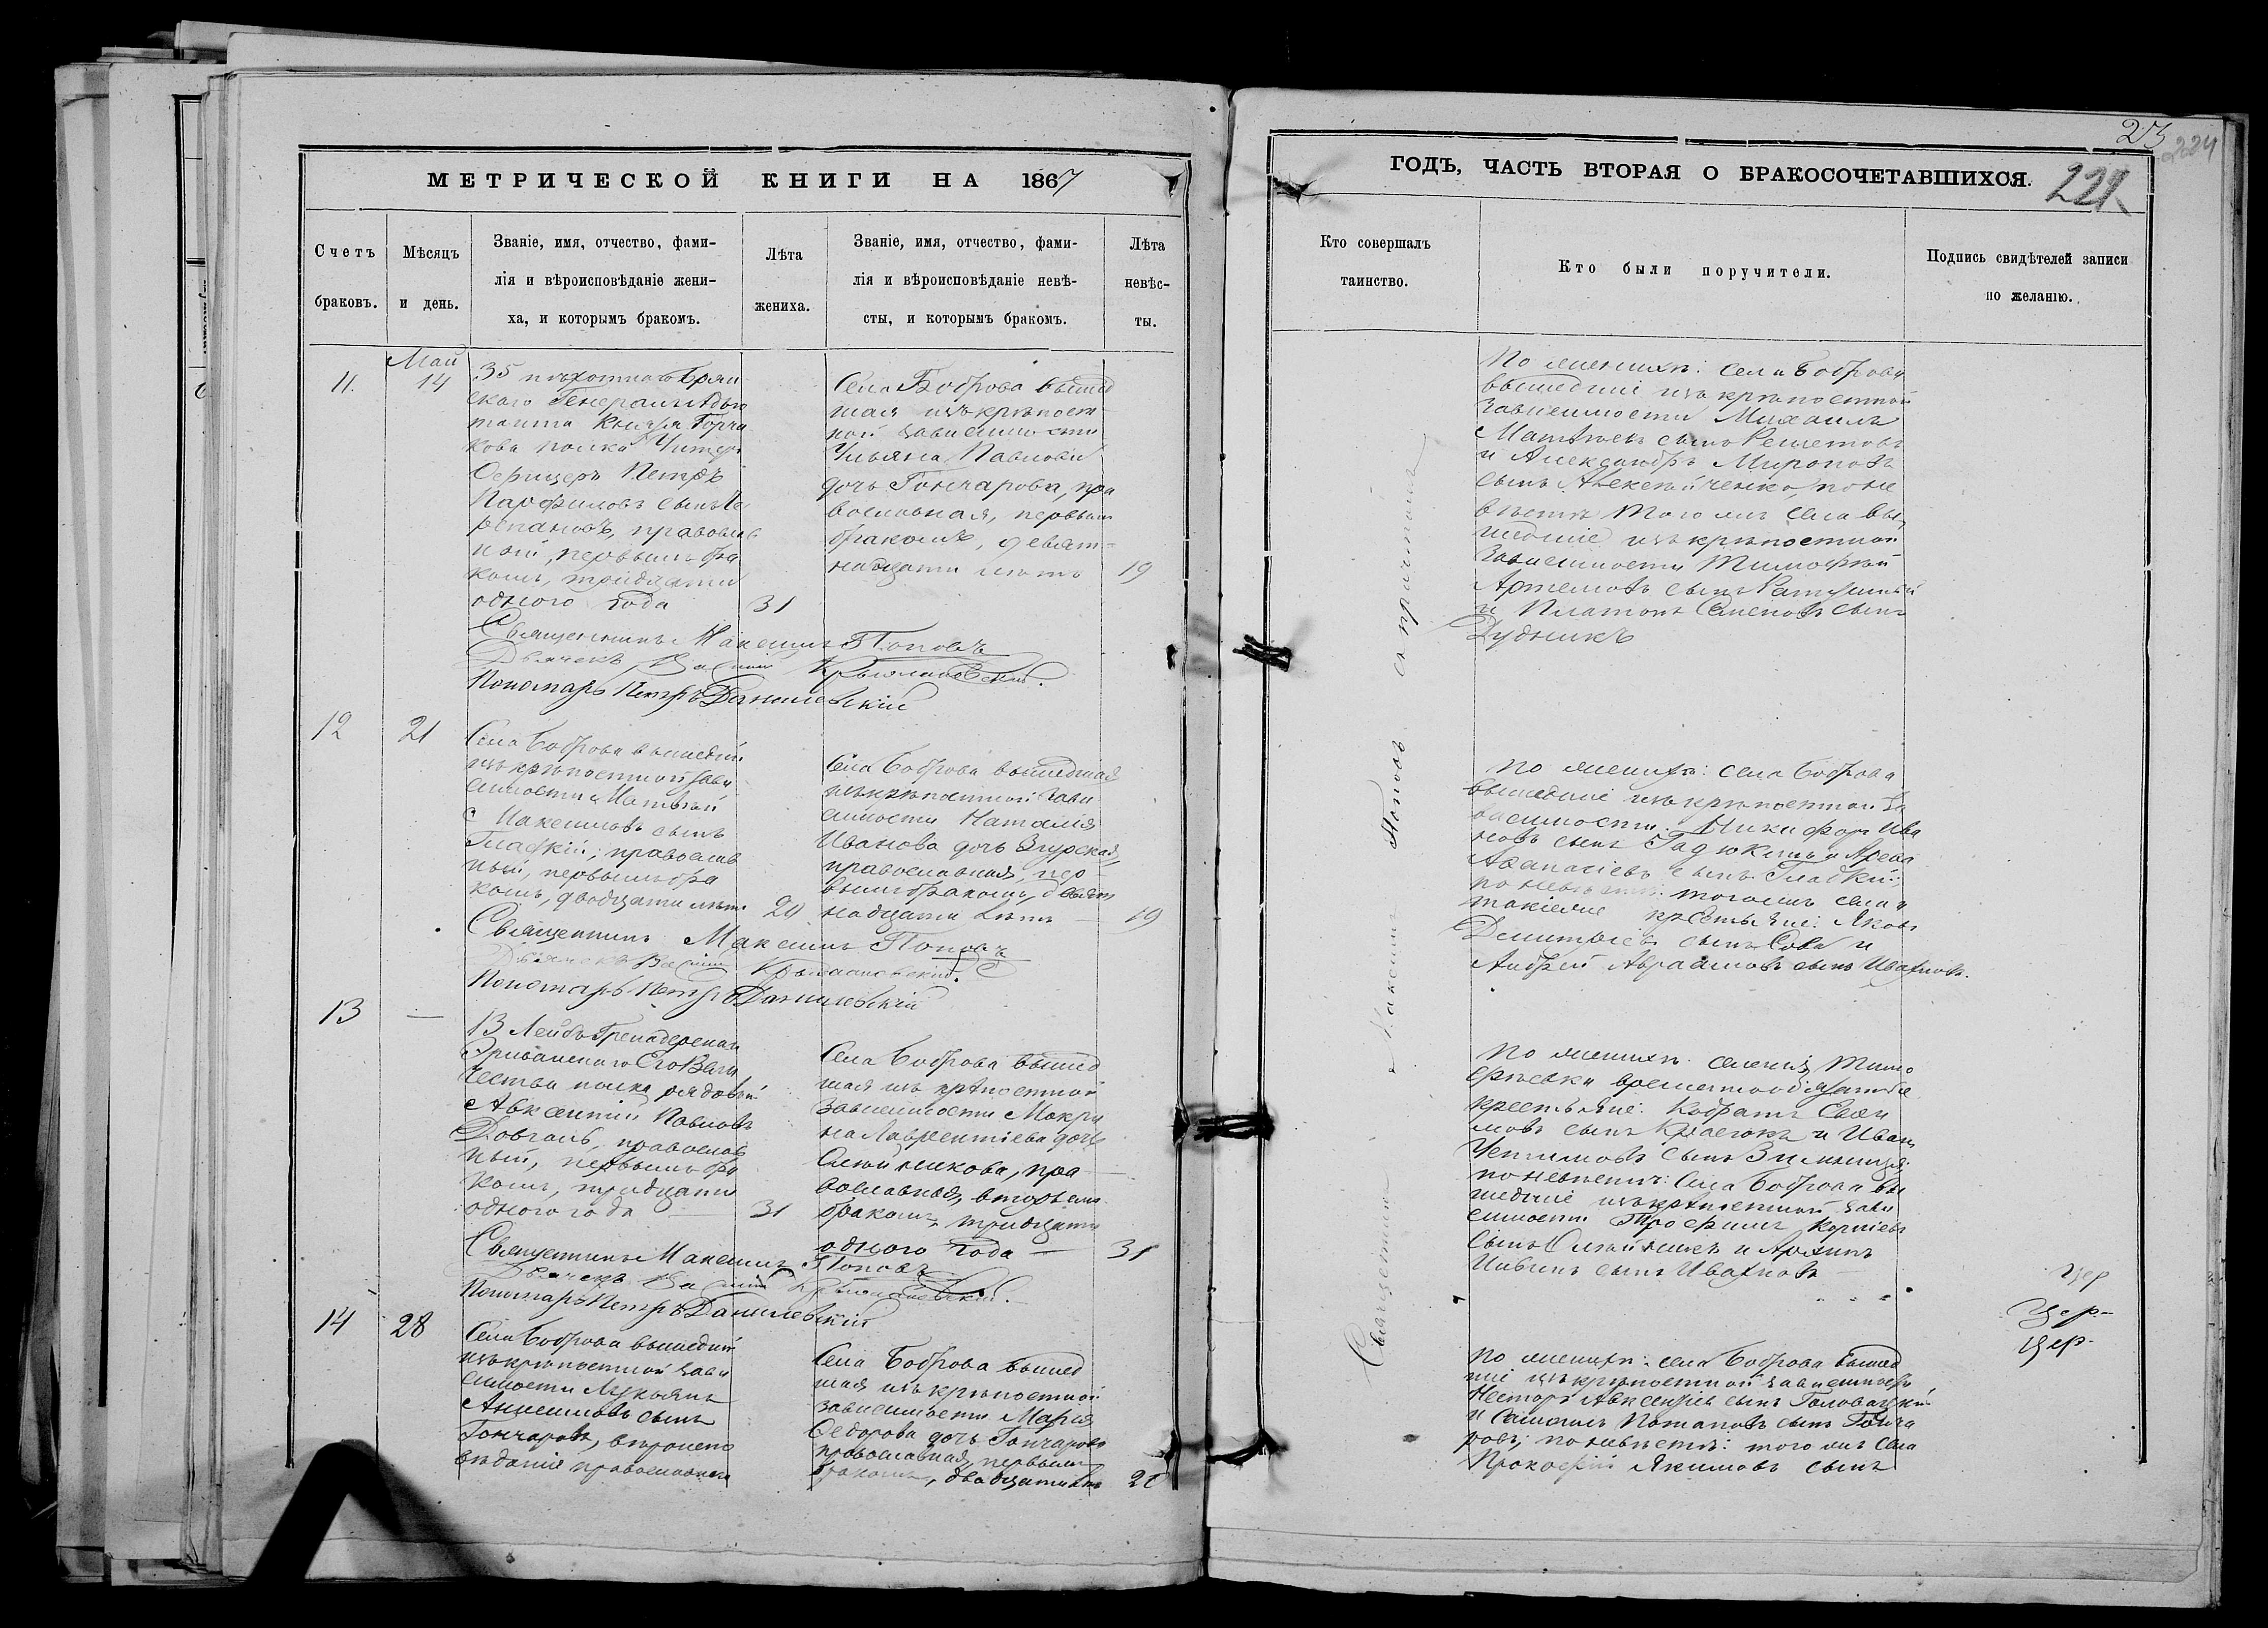 МЕТРИЧЕСКОЙ КНИГИ НА 1867
Счетъ
браковъ.
Мѣсяцъ
и день.
Званіе, имя, отчество, фами-
лія и вѣроисповѣданіе жени-
ха, и которымъ бракомъ.
Лѣта
жениха.
Званіе, имя, отчество, фами-
лія и вѣроисповѣданіе невѣ-
сты, и которымъ бракомъ.
Лѣта
невѣс-
ты.
11.
Май
14
35 пѣхотнаго Брян
скаго Генералъ Адъю
танта Князя Горча
кова полка Унтеръ
Офицеръ Петръ
Парфиловъ сынъ
православ
ный, первымъ бра
комъ, тридцати
одного года
31
Села Боброва вышед
шая изъ крѣпост
ной зависимости
Ульяна Павлова
дочь Гончарова, пра
вославная, первымъ
бракомъ, девят-
надцати лѣтъ
19
Священникъ Максимъ Поповъ
Дьячекъ
Пономарь Петръ Данилевскій
12
21
Села Боброва вышедшій
изъ крѣпостной зави
симости Матвѣй
Максимовъ сынъ
Гладкій, православ
ный, первымъ бра
комъ, двадцати лѣтъ
20
Села Боброва вышедшая
изъ крѣпостной зави
симости Наталія
Иванова дочь Згурская,
православная, пер
вымъ бракомъ, девят
надцати лѣтъ
19
Священникъ Максимъ Поповъ
Дьячекъ
Пономарь Петръ Данилевскій
13
—
13 Лейбъ Гренадерскаго
Эриванскаго Его Вели
чества полка рядовый
Авксентій Павловъ
Довгаль, православ
ный, первымъ бра
комъ, тридцати
одного года
31
Села Боброва вышед
шая изъ крѣпостной
зависимости Макри
на Лаврентіева дочь
Олейникова, пра
вославная, вторымъ
бракомъ, тридцати
одного года —
31
Священникъ Максимъ Поповъ
Дьячекъ
Пономарь Петръ Данилевскій
14
28
Села Боброва вышедшій
изъ крѣпостной зави
симости Лукьянъ
Анисимовъ сынъ
Гончаровъ, вѣроиспо
вѣданія православнаго
Села Боброва вышед
шая изъ крѣпостной
зависимости Марія
Ѳедорова дочь Гончарова
православная, первымъ
бракомъ, двадцати лѣтъ
20
23
224
221
ГОДЪ, ЧАСТЬ ВТОРАЯ О БРАКОСОЧЕТАВШИХСЯ.
Кто совершалъ
таинство.
Кто были поручители.
Подпись свидѣтелей записи
по желанію.
Священникъ Максимъ Поповъ съ причтомъ
По женихѣ: села Боброва
вышедшіе изъ крѣпостной
зависимости Михаилъ
Матвѣевъ сынъ Решетовъ
и Александръ Мироновъ
сынъ Алексѣйченко, по не
вѣстѣ того же села вы
шедшіе изъ крѣпостной
зависимости Тимофѣй
Артемовъ сынъ
и Платонъ Семеновъ сынъ
Дудникъ
По женихѣ: села Боброва
вышедшіе изъ крѣпостной за
висимости: Никифоръ Ива
новъ сынъ
Аѳанасіевъ сынъ Гладкій;
по невѣстѣ: того же села
такіе же крестьяне: Яковъ
Димитріевъ сынъ Сова и
Андрей Авраамовъ сынъ Ивахновъ.
По женихѣ: Тимо
фѣевки временнообязанные
крестьяне: Кодратъ
сынъ и Иванъ
сынъ
по невѣстѣ: Села Боброва вы
шедшіе изъ крѣпостной зави
симости Трофимъ Корнiевъ
сынъ Олейникъ и
сынъ Ивахновъ
цер
Цер-
цер-
По женихѣ: села Боброва вышед
шіе изъ крѣпостной зависимости
Несторъ Авксентіевъ сынъ
и Самоилъ Потаповъ сынъ Гонча
ровъ; по невѣстѣ: того же села
Прокофій Якимовъ сынъ